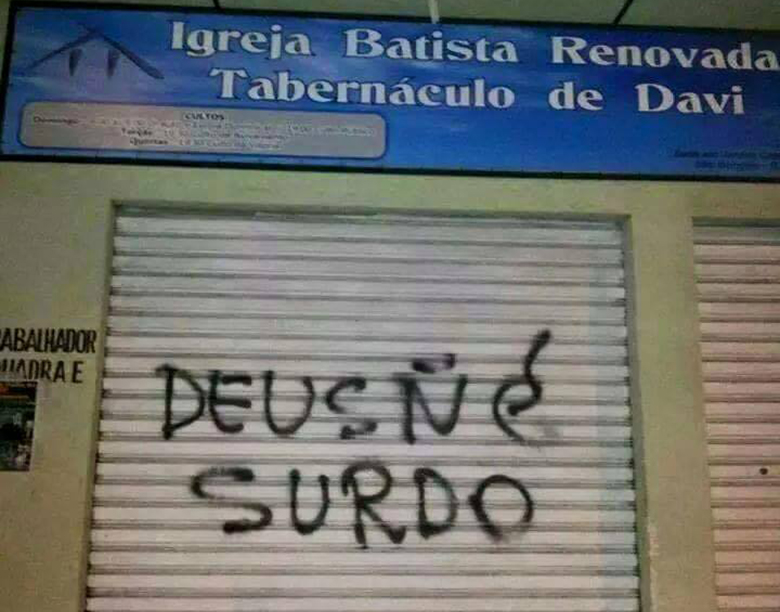 Igreja Batista Renovada
Tabernáculo de Davi
CULTOS
Domingo
Terça
Quintas
ABALHADOR
QUADRA E
DEUS Ñ É
SURDO